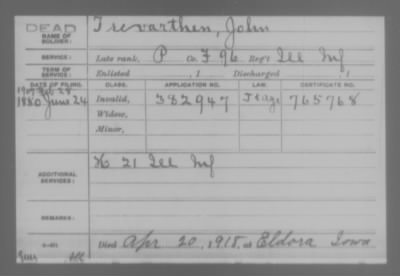 DEAD
NAME OF SOLDIER: Trevarthen, John
SERVICE: Late rank, P Co. F 96 Reg't Ill Inf
TERM OF SERVICE: Enlisted , 1 Discharged , 1
DATE OF FILING. CLASS. APPLICATION NO. LAW. CERTIFICATE NO.
1880 June 24 Invalid, 382947 765768
Widow,
Minor,
ADDITIONAL SERVICES: K 21 Ill Inf
REMARKS:
Died Apr 20, 1918, at Eldora Iowa